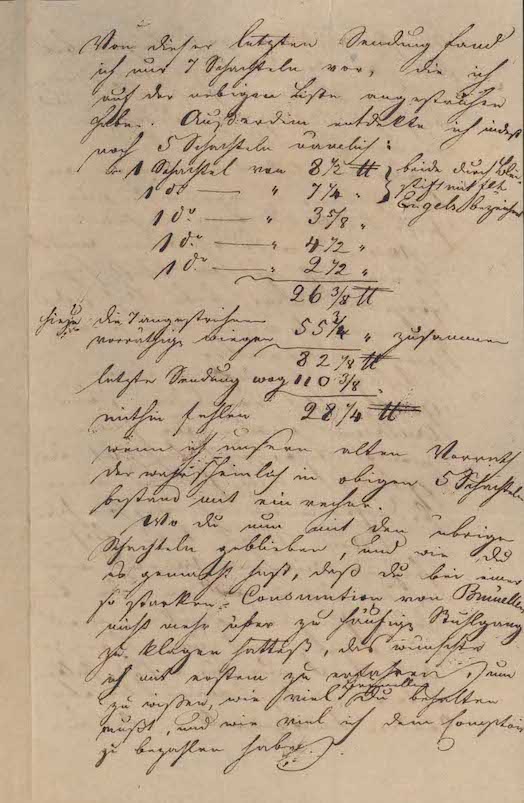 Von dieser letzten Sendung fand
ich nur 7 Schachteln vor, die ich
auf der obigen Liste angestrichen
habe. Außerdem entdekte ich indeß
noch 5 Schachteln nämlich:
1 Schachtel von 8 1/2 ℔ } beide durch Blei-
1 do — " 7 1/4 " stift mit
1 do — " 3 5/8 " Engels bezeichnet
1 do — " 4 1/2 "
1 do — " 2 1/2 "
26 3/8 ℔
hiezu die 7 angestrichenen
vorräthig wiegen 55 3/4 " zusammen
82 1/8 ℔
letzte Sendung wog 110 3/8 "
mithin fehlen 28 1/4 ℔
wenn ich unsern alten Vorrath
der wahrscheinlich in obigen 5 Schachteln
bestand mit einrechne.
Wo du nun mit den übrigen
Schachteln geblieben, und wie du
es gemacht hast, daß du bei einer
so starken Consumtion von Brünellen
nicht mehr über zu häufigen Stuhlgang
zu klagen hattest, das wünschte
ich mit erstem zu erfahren, um
zu wissen, wie viel Brünellen Du behalten
mußt, und wie viel ich dem Comptoir
zu bezahlen habe.